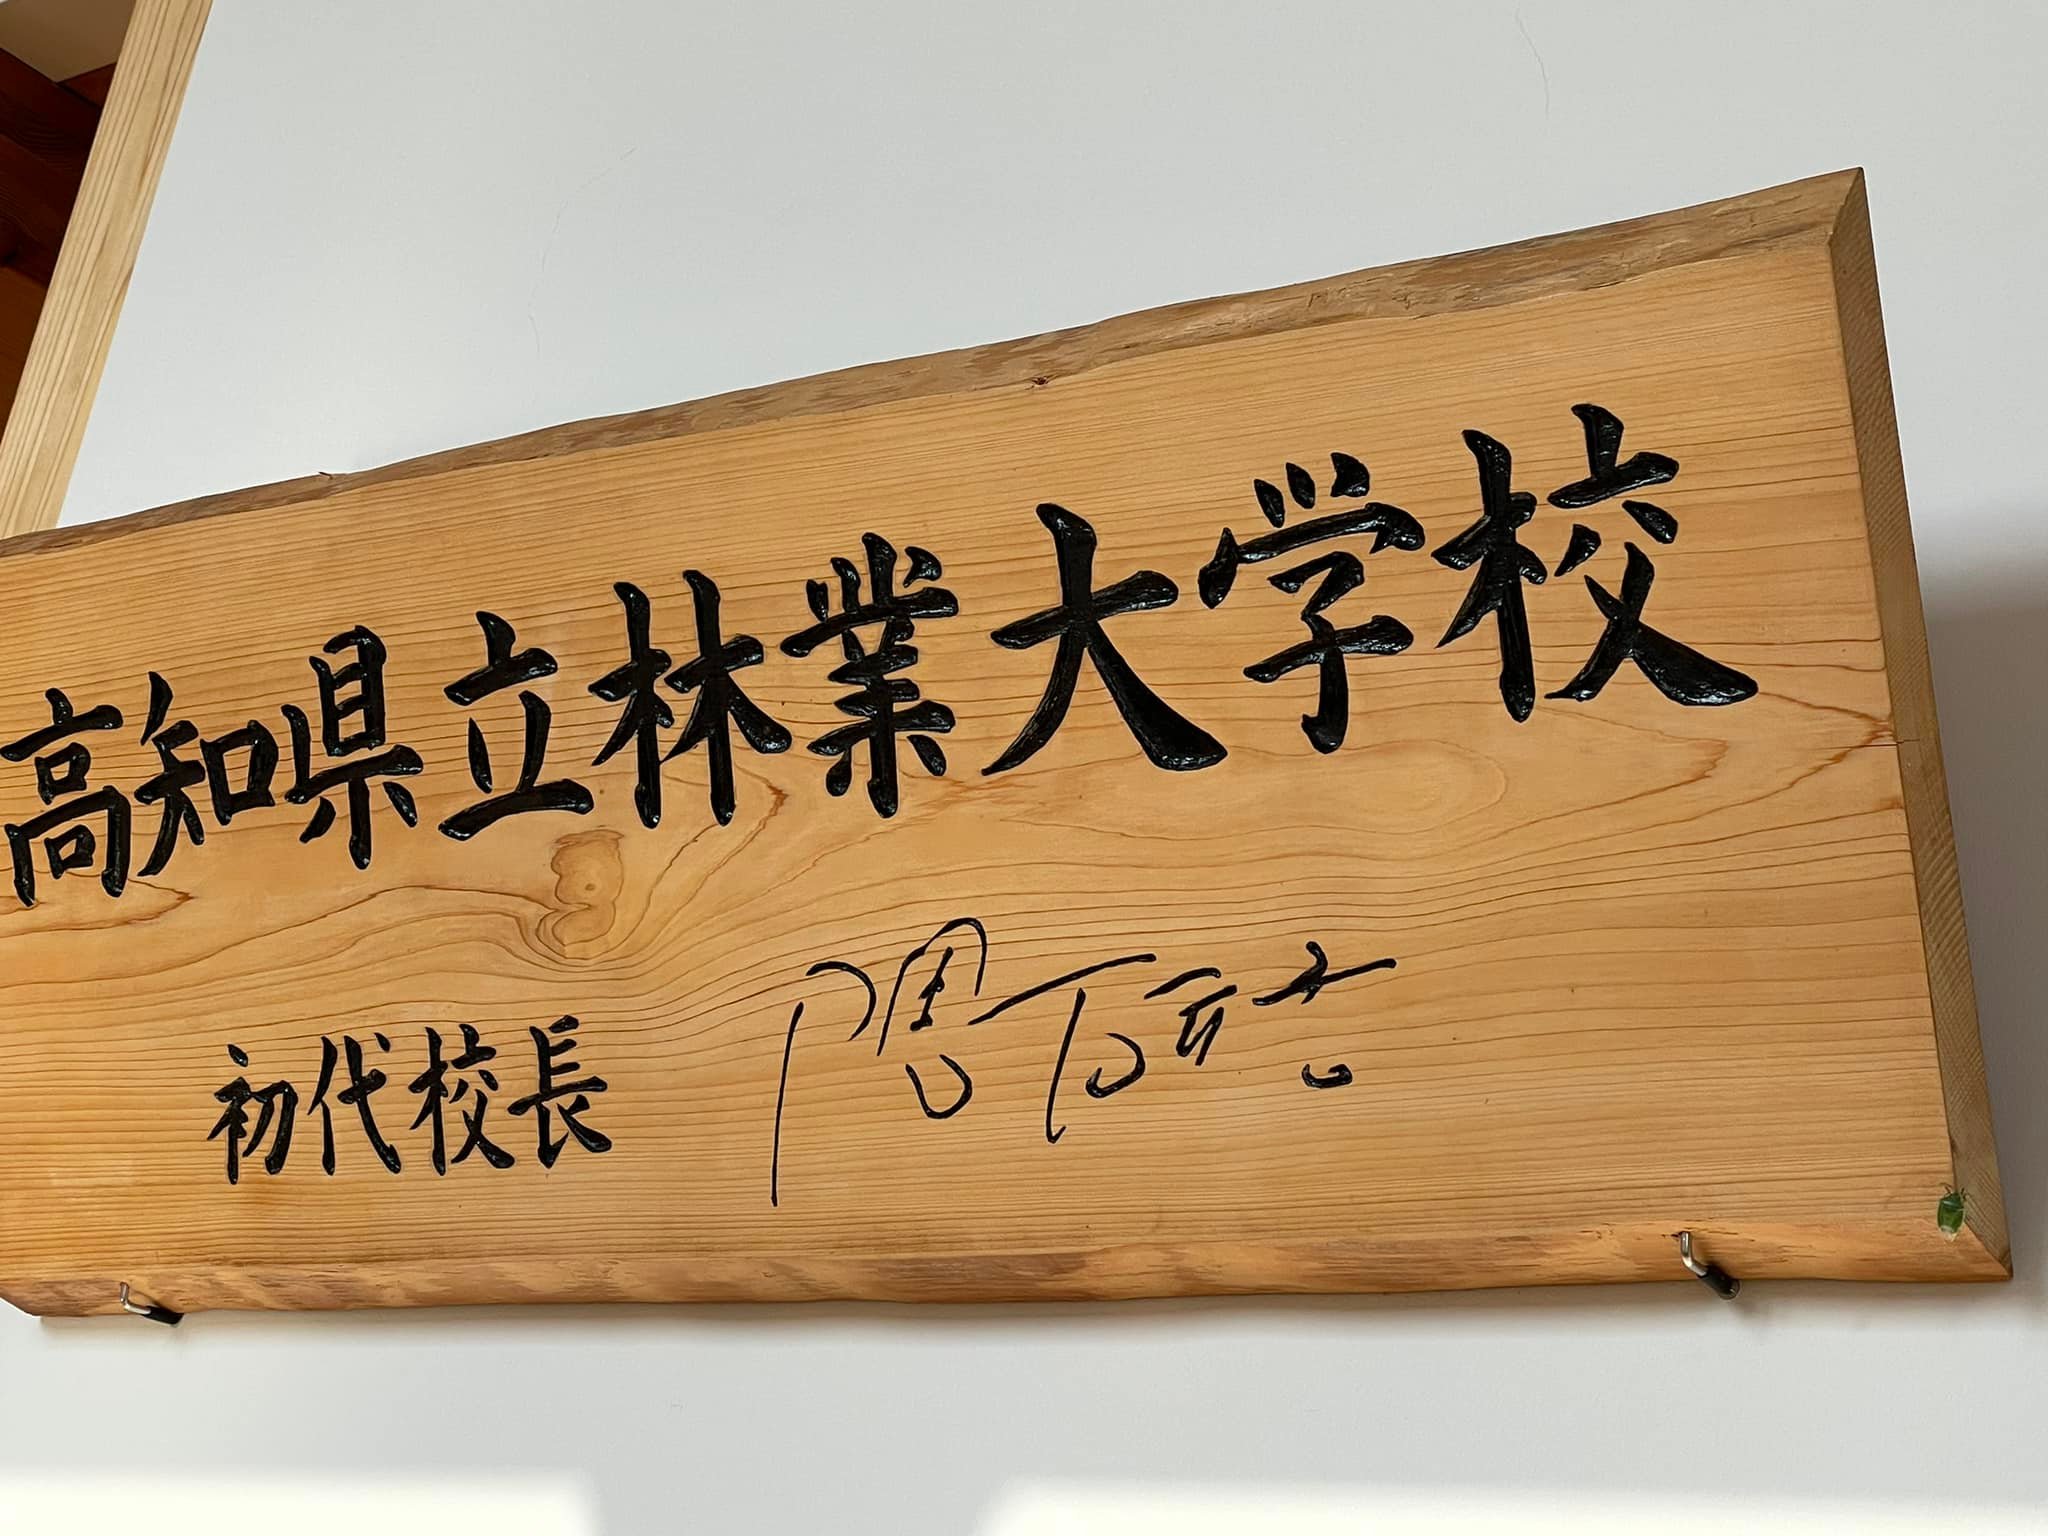 高知県立林業大学校
初代校長 隈研吾